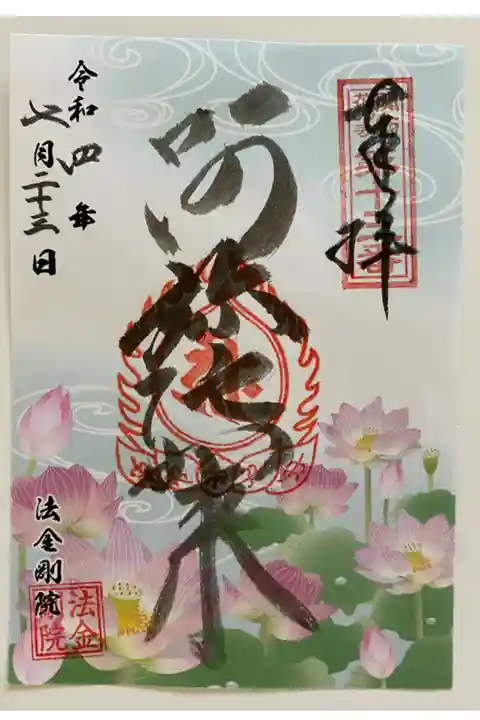 奉拝
阿弥陀如来
令和四年
七月二十三日
法金剛院
法金
院